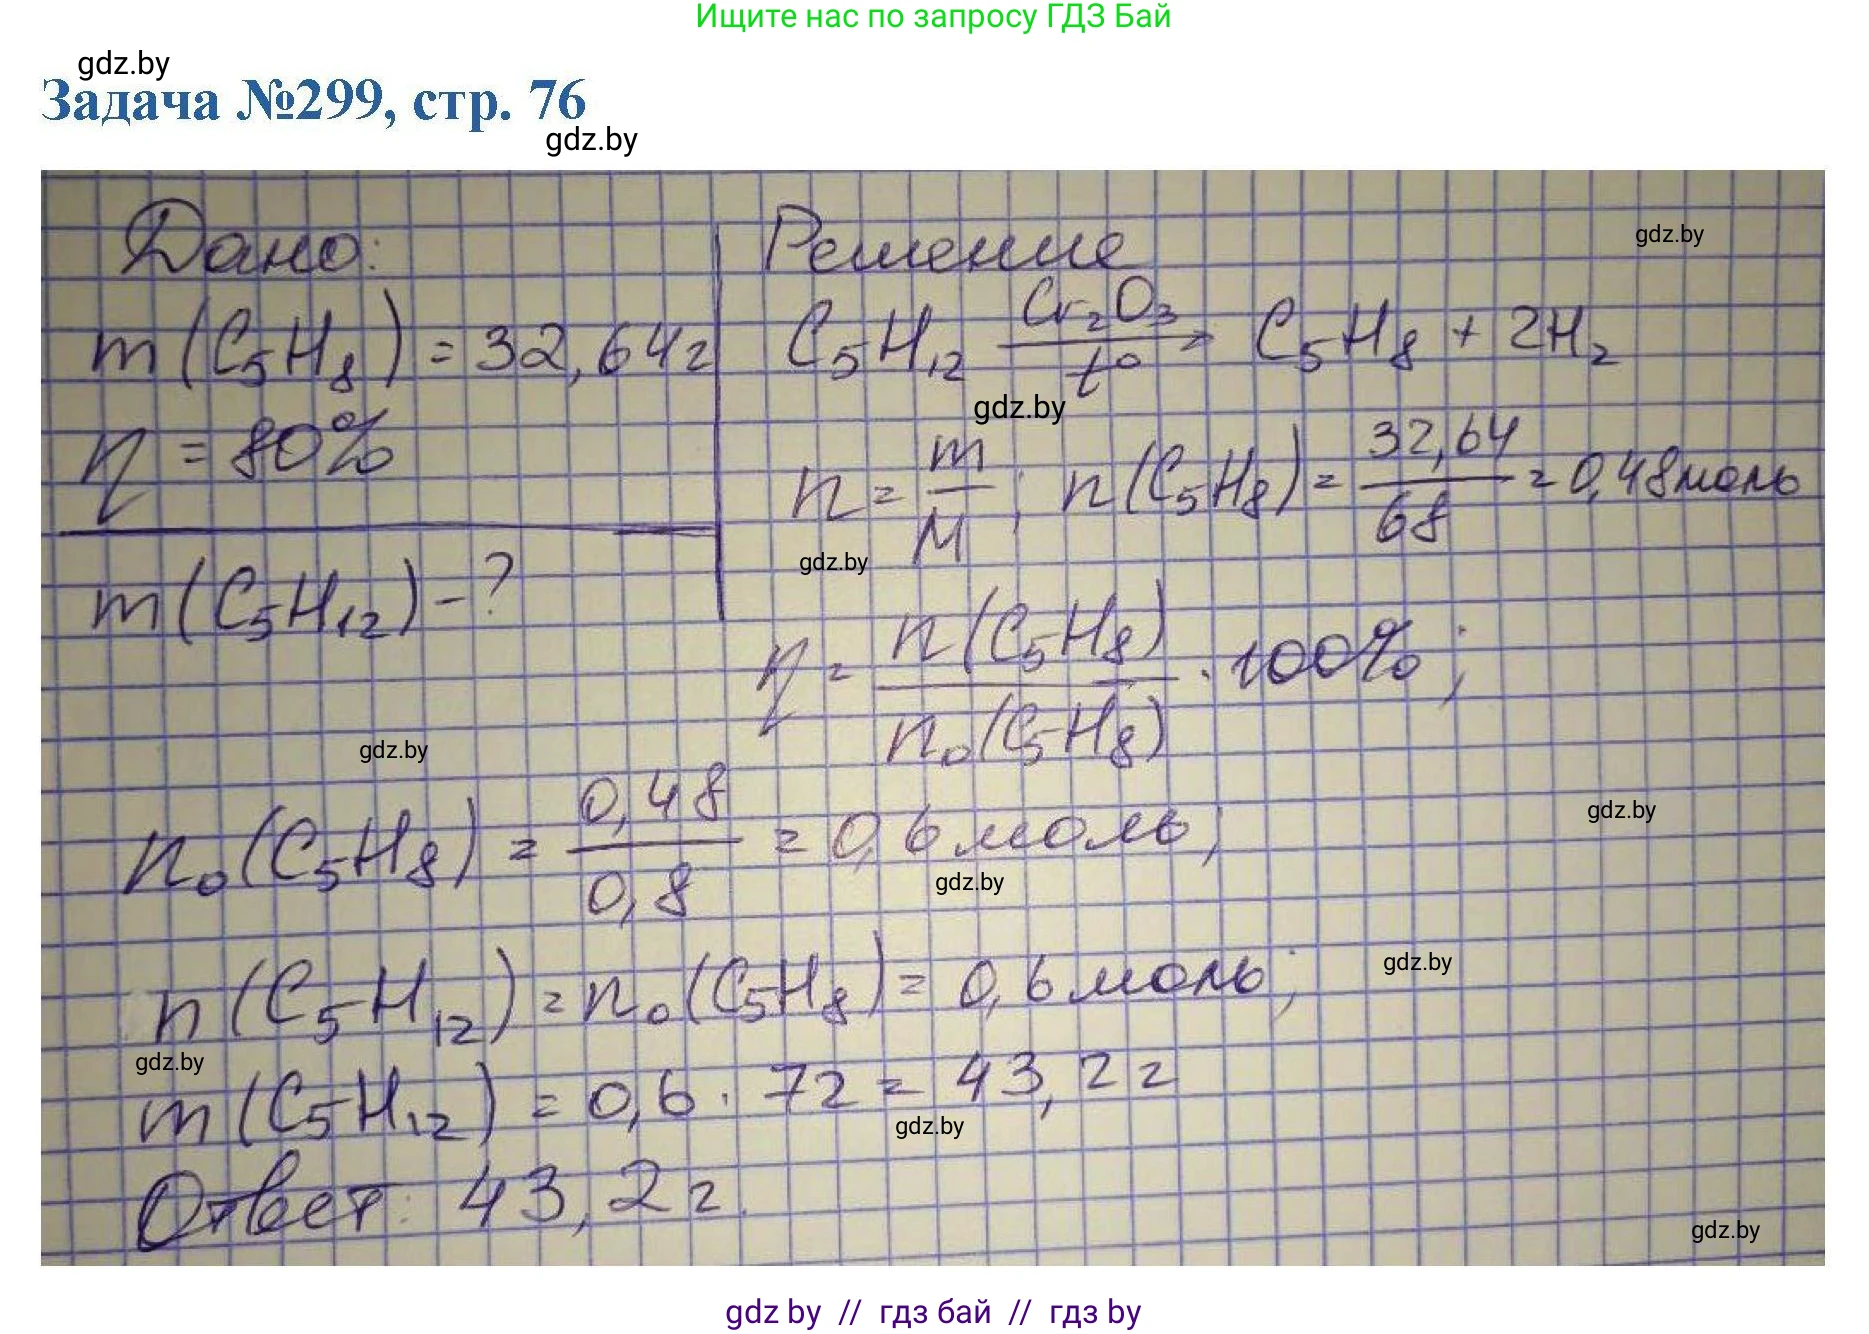 Ищите нас по запросу ГДЗ Бай
gdz.by
Задача №299, стр. 76
gdz.by
Дано:
m(C₅H₈) = 32,64г
η = 80%
m(C₅H₁₂) - ?
Решение
gdz.by
C₅H₁₂ Cr₂O₃ → t° C₅H₈ + 2H₂
gdz.by
n = m/M ; n(C₅H₈) = 32,64/68 = 0,48моль
gdz.by
η = n(C₅H₈)/n₀(C₅H₈) · 100%;
gdz.by
n₀(C₅H₈) = 0,48/0,8 = 0,6 моль;
gdz.by
gdz.by
n(C₅H₁₂) = n₀(C₅H₈) = 0,6 моль;
gdz.by
gdz.by
m(C₅H₁₂) = 0,6 · 72 = 43,2 г
gdz.by
Ответ: 43,2 г.
gdz.by
gdz by // гдз бай // гдз by